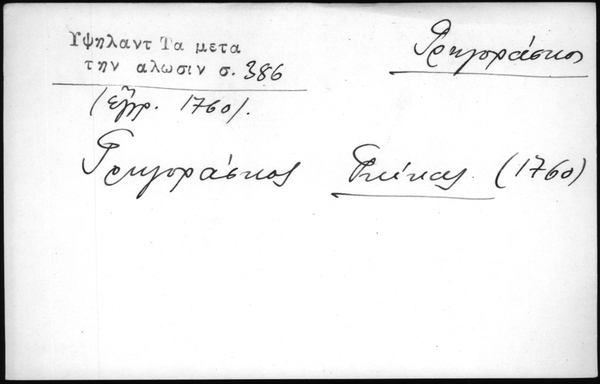 Υψηλαντ Τα μετα
την αλωσιν σ. 386
Γρηγοράσκος
(έγγρ. 1760).
Γρηγοράσκος Γκίκας (1760)